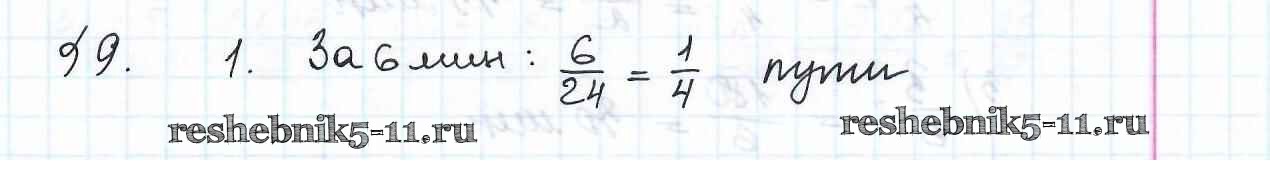 §9. 1. За 6 мин: 6/24 = 1/4 пути
reshebnik5-11.ru reshebnik5-11.ru